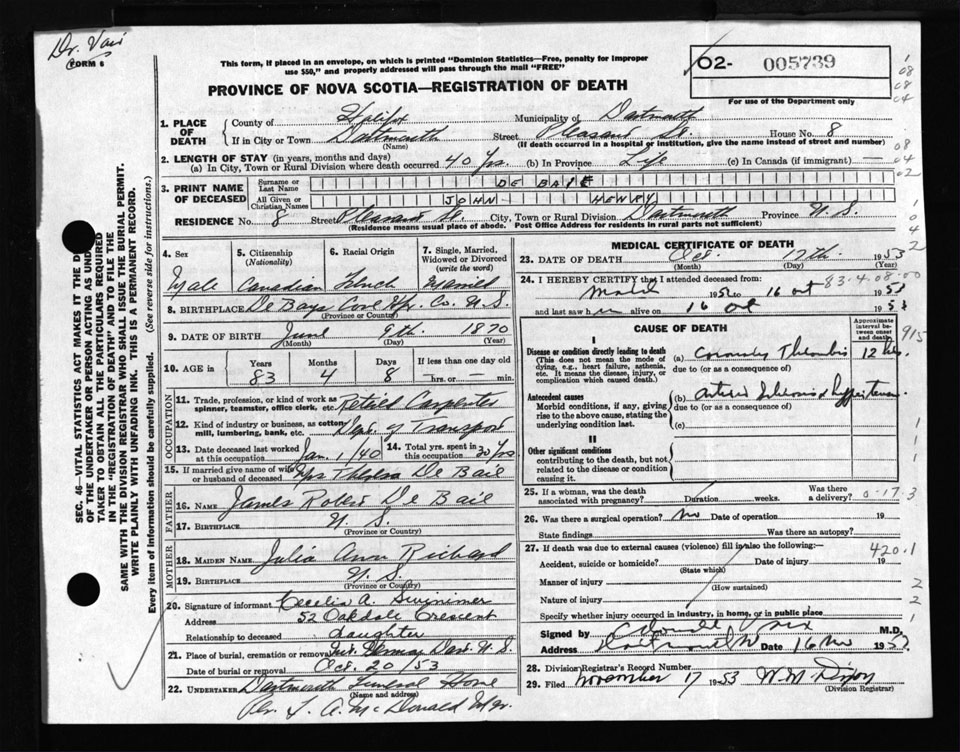 Dr. Vair
FORM 6
This form, if placed in an envelope, on which is printed "Dominion Statistics—Free, penalty for improper
use $50," and properly addressed will pass through the mail "FREE"
02- 005739
For use of the Department only
PROVINCE OF NOVA SCOTIA—REGISTRATION OF DEATH
1. PLACE OF DEATH
County of Halifax Municipality of Dartmouth
If in City or Town Dartmouth Street Pleasant St. House No. 8
(Name) (If death occurred in a hospital or institution, give the name instead of street and number)
2. LENGTH OF STAY (in years, months and days)
(a) In City, Town or Rural Division where death occurred 40 Yrs. (b) In Province Life (c) In Canada (if immigrant) —
3. PRINT NAME OF DECEASED
Surname or Last Name DE BAIE
All Given or Christian Names JOHN- HENRY
RESIDENCE No. 8 Street Pleasant St. City, Town or Rural Division Dartmouth Province N.S.
(Residence means usual place of abode. Post Office Address for residents in rural parts not sufficient)
4. Sex Male
5. Citizenship (Nationality) Canadian
6. Racial Origin French
7. Single, Married, Widowed or Divorced (write the word) Married
8. BIRTHPLACE De Bays Cove Hfx. Co. N.S.
(Province or Country)
9. DATE OF BIRTH June 9th. 1870
(Month) (Day) (Year)
10. AGE in Years 83 Months 4 Days 8 If less than one day old — hrs. or — min.
OCCUPATION
11. Trade, profession, or kind of work as spinner, teamster, office clerk, etc. Retired Carpenter
12. Kind of industry or business, as cotton mill, lumbering, bank, etc. Dept. of Transport
13. Date deceased last worked at this occupation Jan. 1/40
14. Total yrs. spent in this occupation 30 Yrs
15. If married give name of wife or husband of deceased Mrs Thelesa De Baie
FATHER
16. NAME James Robert De Baie
17. BIRTHPLACE N.S.
(Province or Country)
MOTHER
18. MAIDEN NAME Julia Ann Richard
19. BIRTHPLACE N.S.
(Province or Country)
20. Signature of informant Cecelia A. Swinimer
Address 52 Oakdale Crescent
Relationship to deceased daughter
21. Place of burial, cremation or removal Dart. N.S.
Date of burial or removal Oct. 20/53
22. UNDERTAKER Dartmouth Funeral Home
(Name and address)
Per. L. A. McDonald Mgr.
MEDICAL CERTIFICATE OF DEATH
23. DATE OF DEATH Oct. 17th. 1953
(Month) (Day) (Year)
24. I HEREBY CERTIFY that I attended deceased from:
83-4-08-00
March 195 to 16 Oct 1953
and last saw h im alive on 16 Oct 1953
CAUSE OF DEATH
Approximate interval between onset and death
I
Disease or condition directly leading to death
(This does not mean the mode of dying, e.g., heart failure, asthenia, etc. It means the disease, injury, or complication which caused death.)
(a) Coronary Thrombosis 12 hrs.
due to (or as a consequence of)
Antecedent causes
Morbid conditions, if any, giving rise to the above cause, stating the underlying condition last.
(b) Arterio Sclerosis & Hypertension
due to (or as a consequence of)
(c)
II
Other significant conditions
contributing to the death, but not related to the disease or condition causing it.
25. If a woman, was the death associated with pregnancy? Duration weeks. Was there a delivery?
0-17 3
26. Was there a surgical operation? No Date of operation 19
State findings Was there an autopsy?
27. If death was due to external causes (violence) fill in also the following:—
420.1
Accident, suicide or homicide? Date of injury 19
(State which)
Manner of injury
(How sustained)
Nature of injury
Specify whether injury occurred in industry, in home, or in public place
Signed by Vair M.D.
Address Dartmouth Date 16 Nov 1953
28. Division Registrar's Record Number
29. Filed November 17 1953 W. M. Dixon
(Division Registrar)
SEC. 46—VITAL STATISTICS ACT MAKES IT THE
OF THE UNDERTAKER OR PERSON ACTING AS UND
TAKER TO OBTAIN ALL THE PARTICULARS REQUIRED
IN THE "REGISTRATION OF DEATH" AND TO FILE THE
SAME WITH THE DIVISION REGISTRAR WHO SHALL ISSUE THE BURIAL PERMIT.
WRITE PLAINLY WITH UNFADING INK. THIS IS A PERMANENT RECORD.
Every item of information should be carefully supplied. (See reverse side for instructions.)